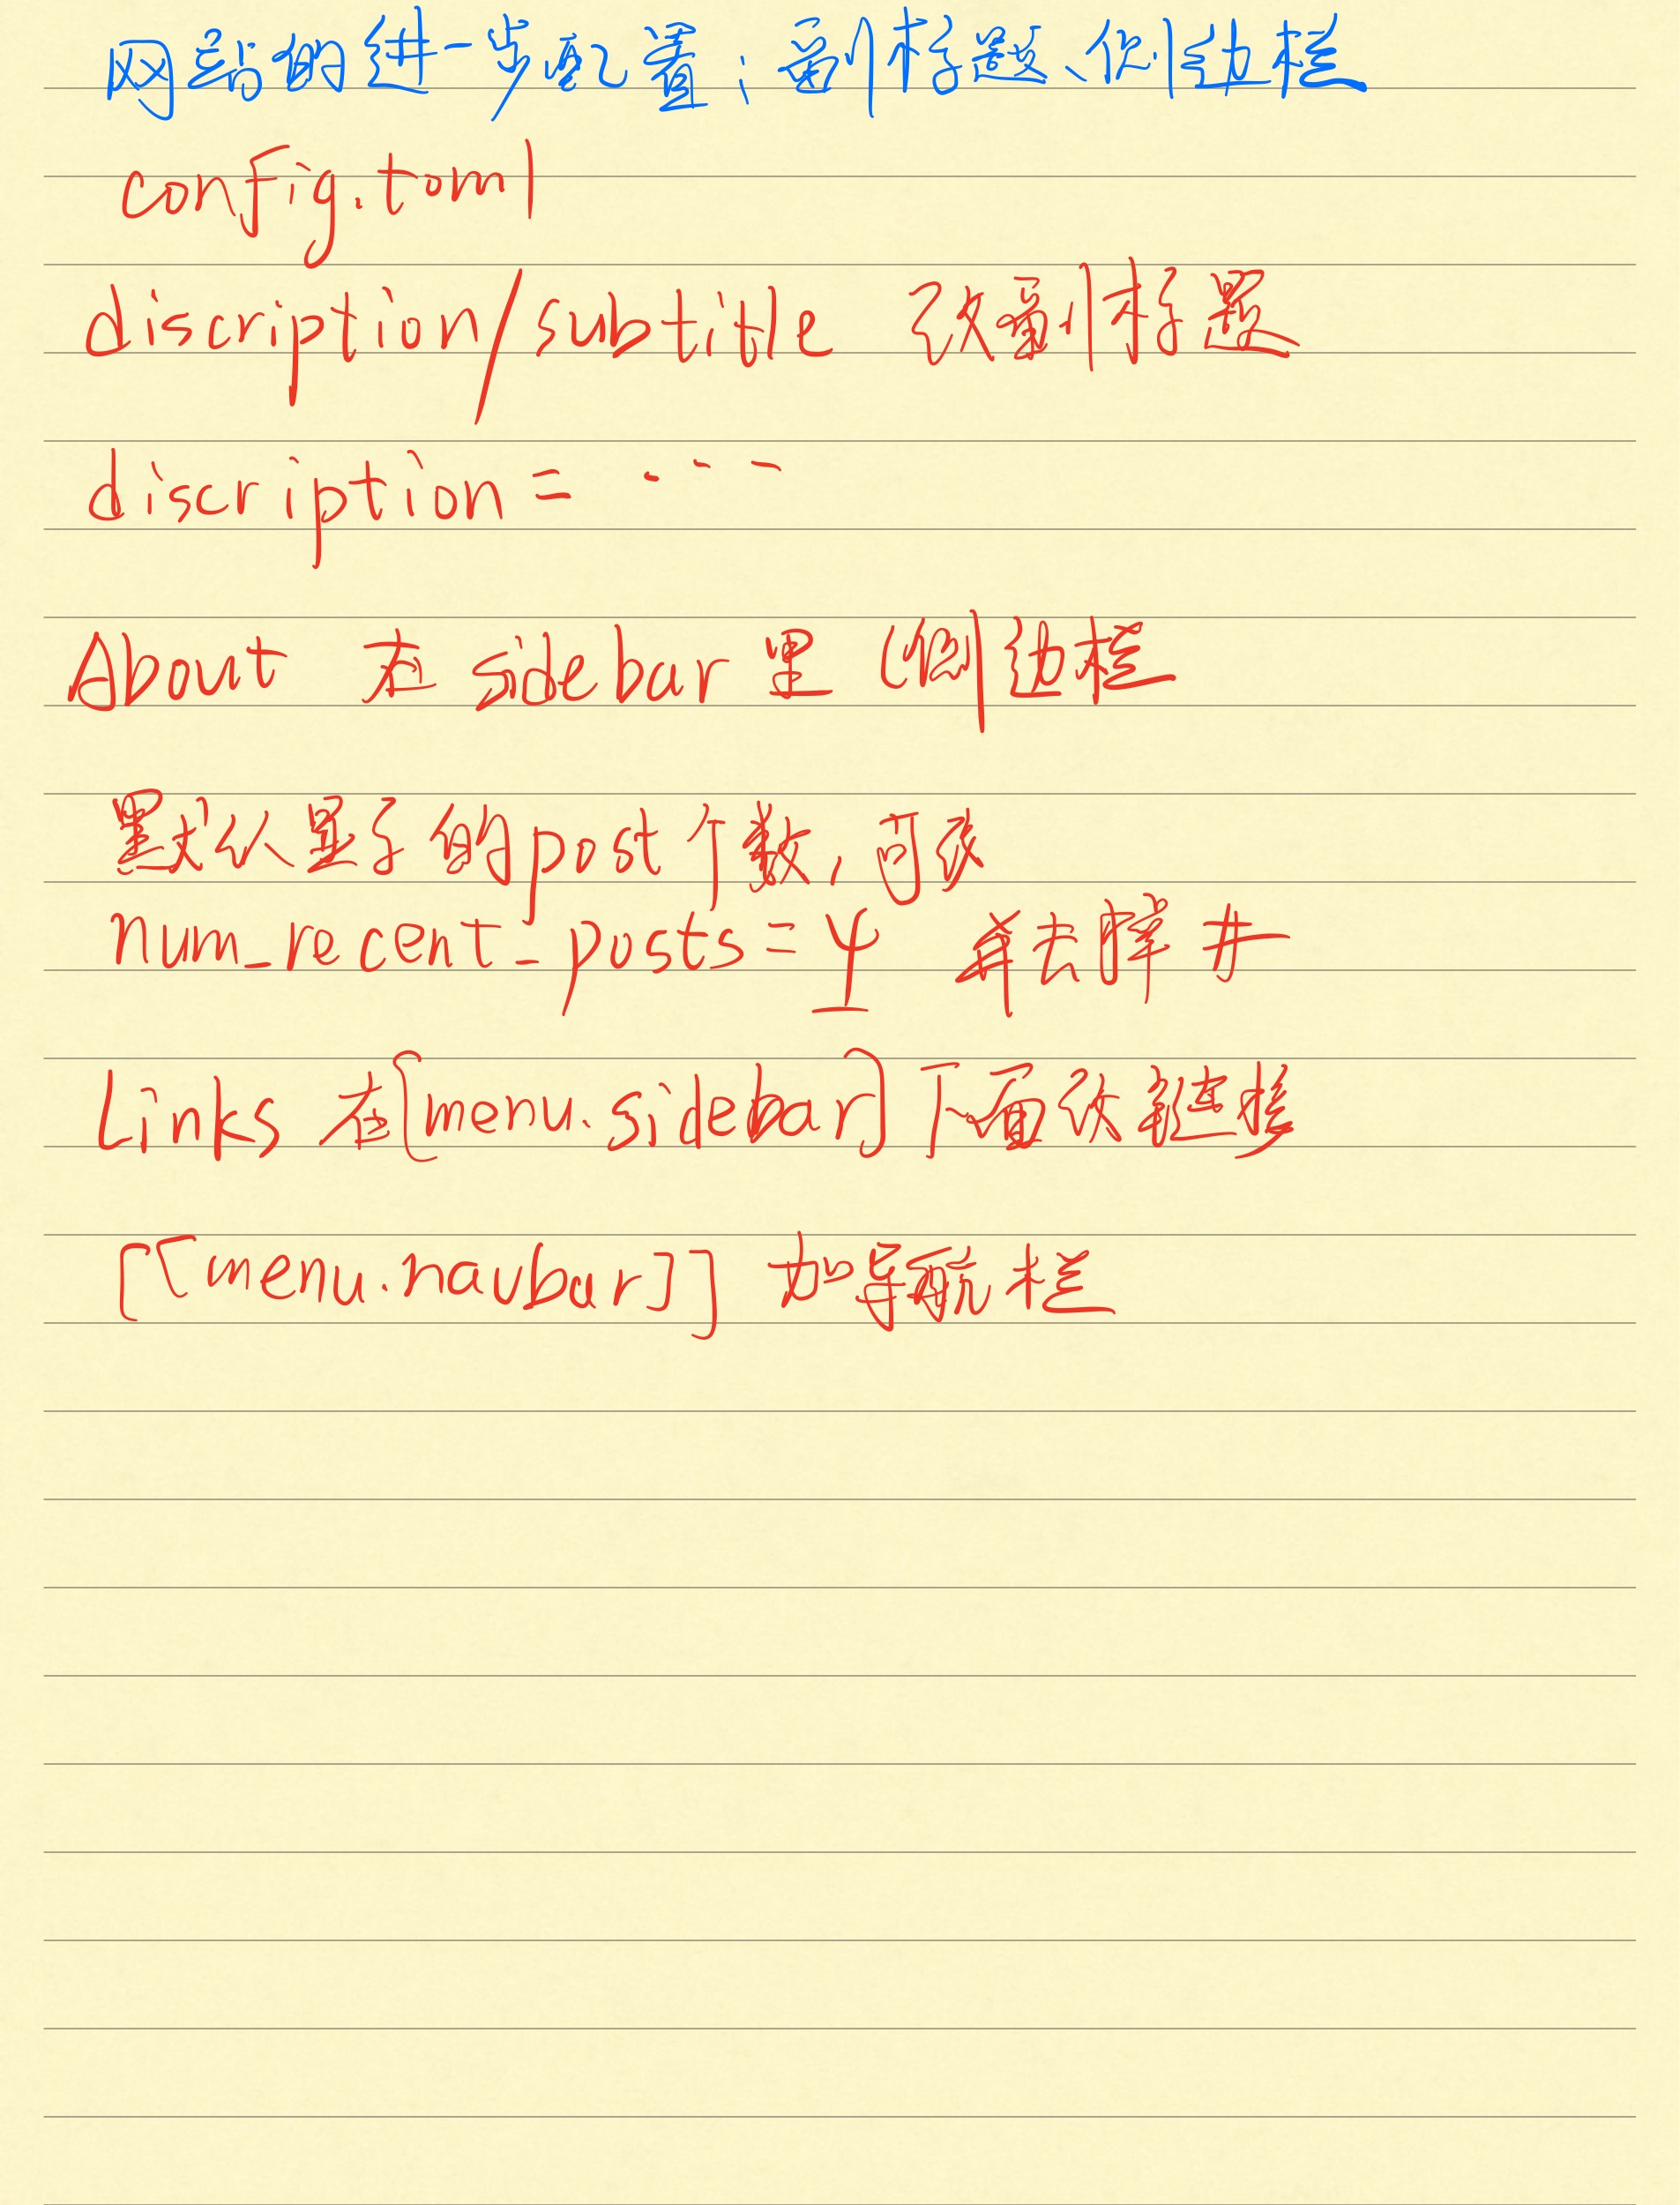 网站的进一步配置:副标题、侧边栏
config.toml
discription/subtitle 改副标题
discription = ····
About 在 sidebar 里 (侧边栏
默认显示的post个数,可改
num_recent_posts = 4 并去掉 #
Links 在[menu.sidebar]下面改链接
[[menu.navbar]] 加导航栏